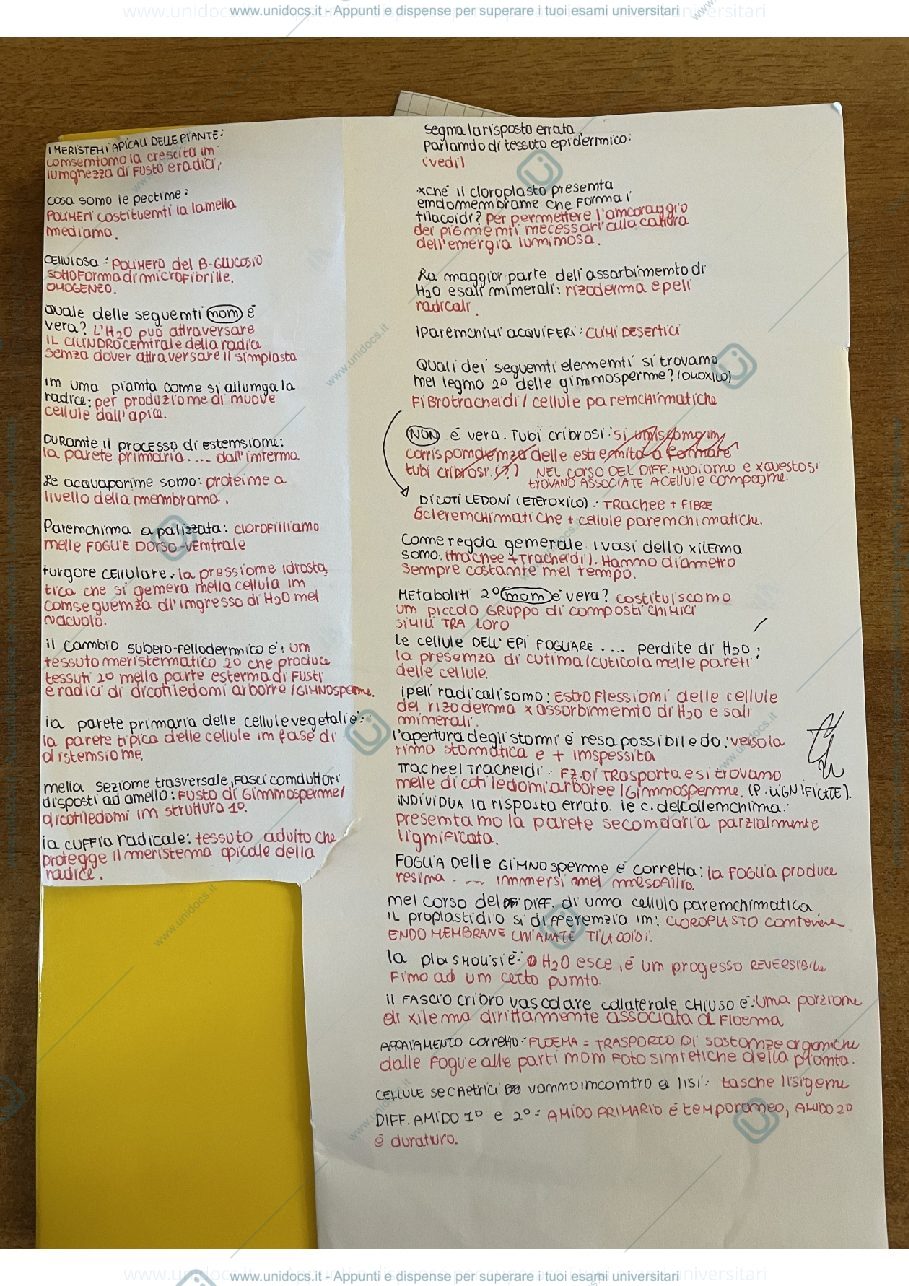 www.unidocs.it - Appunti e dispense per superare i tuoi esami universitari
I MERISTEMI APICALI DELLE PIANTE:
consentono la crescita in
lunghezza di fusto e radici.
cosa sono le pectine:
POLIMERI costituenti la lamella
mediana.
CELLULOSA: POLIMERO del B-GLUCOSIO
SOTTO FORMA di MICROFIBRILLE.
OMOGENEO.
Quale delle seguenti (non) è
vera? L'H2O può attraversare
IL CILINDRO centrale della radice
senza dover attraversare il simplasto
In una pianta come si allunga la
radice: per produzione di nuove
cellule dall'apice.
DURANTE il processo di estensione:
la parete primaria .... dall'interno
Le acquaporine sono: proteine a
livello della membrana.
Parenchima a palizzata: clorofilliano
nelle FOGLIE DORSO-VENTRALE
turgore cellulare: la pressione idrosta
tica che si genera nella cellula in
conseguenza di ingresso di H2O nel
vacuolo.
il cambio subero-fellodermico è: un
tessuto meristematico 2° che produce
tessuti 2° nella parte esterna di fusti
e radici di dicotiledoni arboree/GIMNOSPERME.
la parete primaria delle cellule vegetali è:
la parete tipica delle cellule in fase di
distensione.
nella sezione trasversale, fasci conduttori
disposti ad anello: fusto di Gimnosperme/
dicotiledoni in struttura 1°.
la cuffia radicale: tessuto adulto che
protegge il meristema apicale della
radice.
segna la risposta errata
Parlando di tessuto epidermico:
(vedi)
xché il cloroplasto presenta
endomembrane che forma i
tilacoidi? Per permettere l'ancoraggio
dei pigmenti necessari alla cattura
dell'energia luminosa.
La maggior parte dell'assorbimento di
H2O e sali minerali: rizoderma e peli
radicali.
I Parenchimi acquiferi: climi desertici
Quali dei seguenti elementi si trovano
nel legno 2° delle gimnosperme? (omoxilo)
Fibrotracheidi / cellule parenchimatiche
(NON) è vera. Tubi cribrosi: si uniscono in
corrispondenza delle estremità a formare
tubi cribrosi. (??) NEL CORSO DEL DIFF. MUOIONO e x questo si
TROVANO ASSOCIATE A Cellule compagne.
DICOTILEDONI (ETEROXILO): TRACHEE + FIBRE
Sclerenchimatiche + cellule parenchimatiche.
Come regola generale i vasi dello xilema
sono. (trachee + tracheidi). Hanno diametro
sempre costante nel tempo.
METABOLITI 2° (non) è vera? costituiscono
un piccolo GRUPPO di COMPOSTI CHIMICI
SIMILI TRA LORO
le cellule DELL'EPI FOGLIARE .... perdite di H2O:
la presenza di cutina/cuticola nelle pareti
delle cellule.
i peli radicali sono: Estroflessioni delle cellule
del rizoderma x assorbimento di H2O e sali
minerali.
l'apertura degli stomi è resa possibile da:
rima stomatica e + inspessita
Trachee/Tracheidi: FZ. DI TRASPORTO e si trovano
nelle dicotiledoni arboree/Gimnosperme. (P. LIGNIFICATE).
INDIVIDUA la risposta errata. le c. del collenchima:
presentano la parete secondaria parzialmente
lignificata.
FOGLIA delle GIMNOSPERME è corretta: la foglia produce
resina .... immersi nel mesofillo.
nel corso del DIFF. di una cellula parenchimatica
IL proplastidio si differenzia in: CLOROPLASTO contenente
ENDOMEMBRANE CHIAMATE TILACOIDI.
la plasmolisi è: H2O esce, è un processo REVERSIBILE
Fino ad un certo punto.
il FASCIO cribro vascolare collaterale CHIUSO è: Una porzione
di xilema direttamente associata al Floema
APPAIAMENTO corretto: FLOEMA = TRASPORTO DI sostanze organiche
dalle foglie alle parti non fotosintetiche della pianta.
CELLULE secretrici vanno incontro a lisi: tasche lisigene
DIFF. AMIDO 1° e 2°: AMIDO PRIMARIO è temporaneo, AMIDO 2°
è duraturo.
www.unidocs.it - Appunti e dispense per superare i tuoi esami universitari